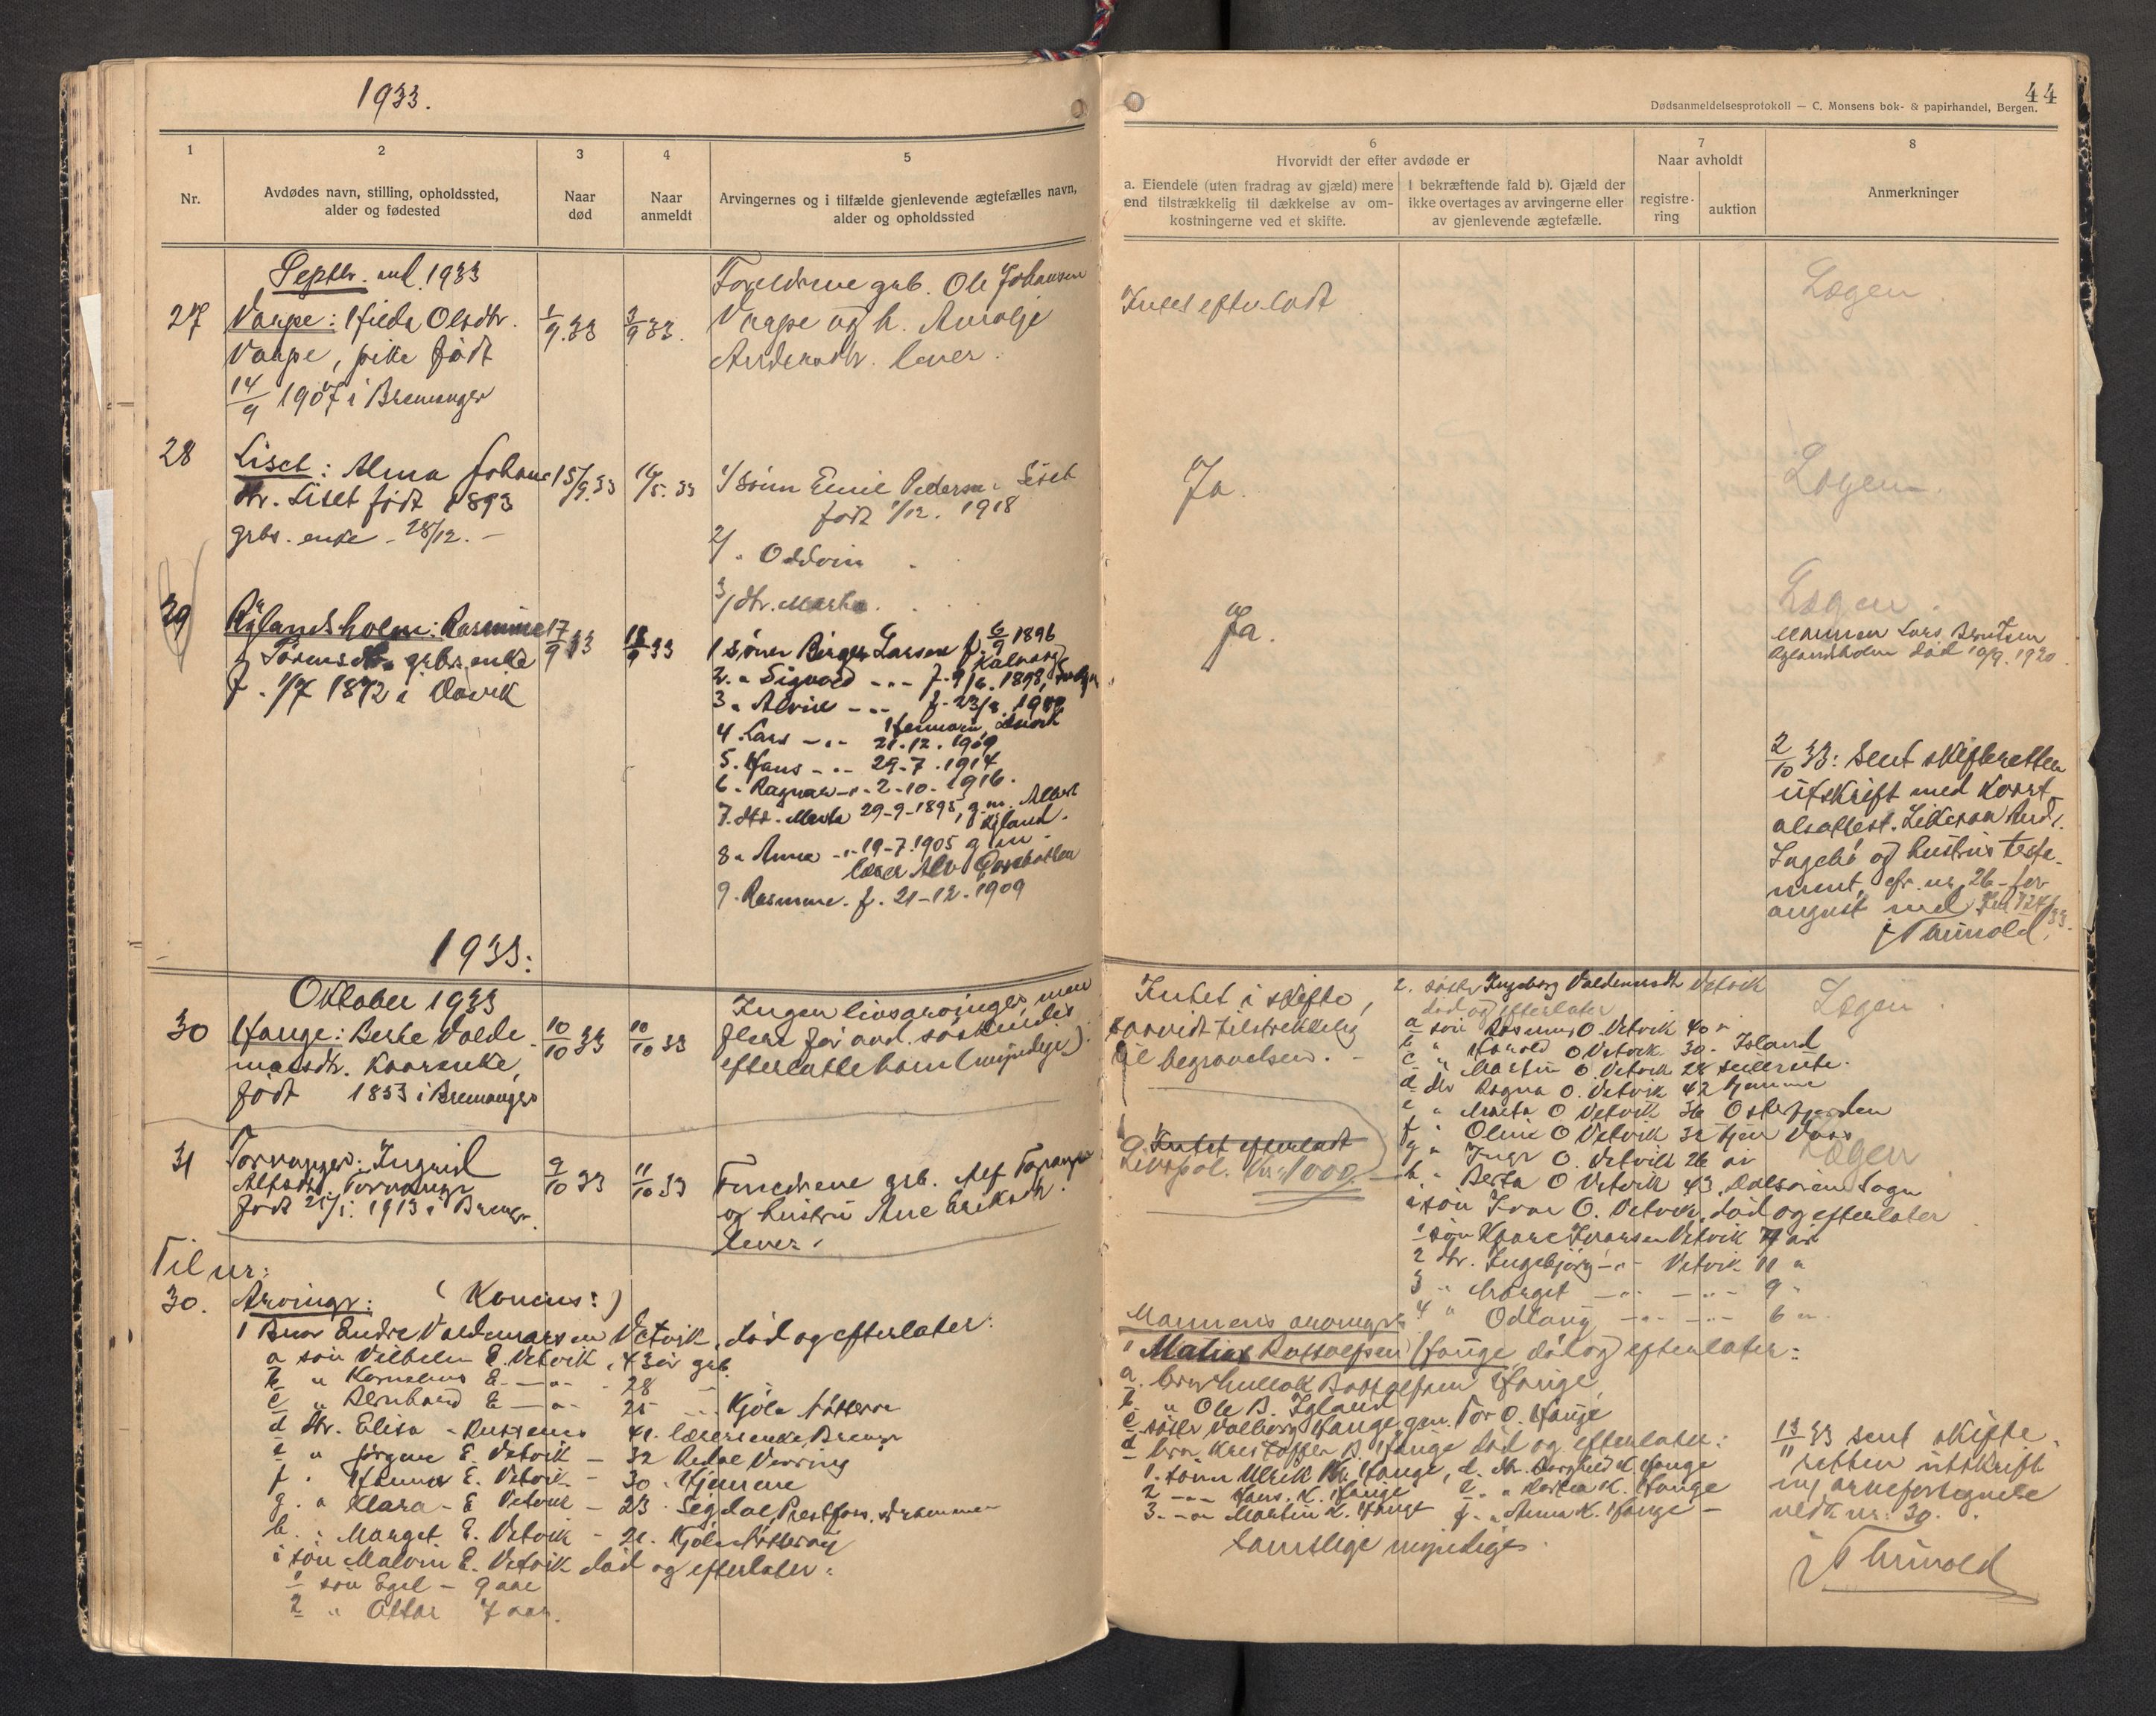 1933.
44
Dødsanmeldelsesprotokoll — C. Monsens bok- & papirhandel, Bergen.
1
2
3
4
5
6
7
8
Nr.
Avdødes navn, stilling, opholdssted,
alder og fødested
Naar
død
Naar
anmeldt
Arvingernes og i tilfælde gjenlevende ægtefælles navn,
alder og opholdssted
Hvorvidt der efter avdøde er
a. Eiendele (uten fradrag av gjæld) mere
end tilstrækkelig til dækkelse av om-
kostningerne ved et skifte.
I bekræftende fald b). Gjæld der
ikke overtages av arvingerne eller
av gjenlevende ægtefælle.
Naar avholdt
registre-
ring
auktion
Anmerkninger
Septbr. md. 1933
27
Vaage: Hilda Olsdtr.
Vaage, pike født
14/9 1907 i Bremanger
1/9.33
3/9 33.
Foreldrene grb. Ole Johansen
Vaage og h. Amalie
Andersdtr. lever.
Intet efterladt
Legen
28
Liset: Alma Johans
dtr. Liset født 1893
grbr. enke - 28/12. -
15/9.33
1/ sønn Emil Pedersen Liset
født 1/12. 1918
2/ " Oddvin "
3/ dtr. Marta
Ja.
Legen.
29
Iglandsholm: Rasmine
Tørresdtr. grbr. enke
f. 1/7 1872 i Davik
17/9 33
18/9 33
1 sønn Birger Larsen f. 6/9 1896
Kalvåg
2. " Sigvald - " - f. 9/6. 1898,
3 " Alvin - " - f. 23/8. 19
4 Lars - " - 21.12.1909
5. Hans - " - 29-7.1914
6 - Ragnar - " - 2-10-1916.
7. dtr. Marta 29-9-1895, g.m. Albert
Igland.
8 " Anna - " - 19-7.1905 g m
lærer Alv
9. Rasmine. f. 21-12.1909
Ja.
Legen.
Mannen Lars Berntsen
Iglandsholm død 10/9. 1920
2/10 33: Sent skifteretten
utskrift med
attest. Likesaa And.
Ingebr og hustrus testa-
ment, cfr. nr. 26 - for
august md
Thunold
1933:
Oktober 1933
30
Hauge: Berte Valde
marsdtr. Kaarenke,
født 1853 i Bremanger
10/10 33
10/10 33
Ingen livsarvinger, men
flere før avd. søskendes
efterlatte barn (myndige).
Intet i skifte,
saavidt tilstrekkelig
til begravelsen. -
Legen
2. søster Ingeborg Valdemarsdtr Vetvik
død og efterlater
a søn Rasmus O. Vetvik 40 "
b " Harald O Vetvik 30 - Island
c " Martin O. Vetvik 28 seilrute.
d dtr Ragna O. Vetvik 42 hjemme
e " Marta O Vetvik 36 Osterfjorden
f " Oline O Vetvik 32 hjem Voss
g " Inga O. Vetvik 26 år
h. " Berta O Vetvik 43, Dalsøren Sogn
i søn Ivar O. Vetvik, død og efterlater
1 søn Kaare Ivarsen Vetvik år
2 dtr. Ingebjørg - " - Vetvik 11 "
3 " Marget - " - - " - 9 "
4 " Odlaug - " - - " - 6 "
31
Torvanger: Ingrid
Alfsdtr. Torvanger
født 21/1. 1913 i Bremgr.
9/10 33
11/10 33
Foreldrene grb. Alf Torvanger
og hustru Ane Eriksdtr.
lever.
Intet efterladt
Livspol. kr. 1000.-
Legen
Til nr:
30.
Arvinger: (Konens:)
1 Bror Endre Valdemarsen Vetvik, død og efterlater:
a søn Vilhelm E. Vetvik, 43 år grb.
b " Kornelius E. - " - - 28 -
c " Bernhard E - " - 25 - " - Kjøle
d dtr. Elisa - 41. lærerenke, Bremgr
e " Jørgine E. Vetvik - 32 Redal
f " Hanna E. Vetvik - 30. Hjemme
g. " Klara - E Vetvik - 23. Sigdal, Prestfoss, Drammen
h. " Marget. E. Vetvik - 21. Kjøle
i søn Malvin E. Vetvik død og efterlater:
1 søn Egil - 9 aar
2 " Ottar 7 aar.
Mannens arvinger:
1 Matias Rolfsen Hauge død og efterlater:
a. bror Hauge,
b. " Ole B. Igland
c søster Valborg Hauge gm. Tor O. Hauge
d bror Kristoffer B. Hauge død og efterlater:
1. sønn Ulrik Kr. Hauge, d. dtr. Borghild K. Hauge
2 - " - Hans. K. Hauge e. " K. Hauge
3. - " - Martin K. Hauge f. " Anna K. Hauge -
samtlige myndige.
13/11 33 sent skifte-
retten utskrift
m/ arvefortegnelse
vedk nr. 30.
Thunold